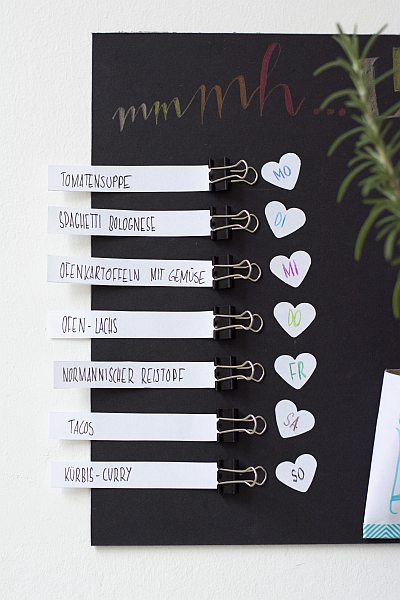 mmmmh...
TOMATENSUPPE MO
SPAGHETTI BOLOGNESE DI
OFENKARTOFFELN MIT GEMÜSE MI
OFEN-LACHS DO
NORMANNISCHER REISTOPF FR
TACOS SA
KÜRBIS-CURRY SO